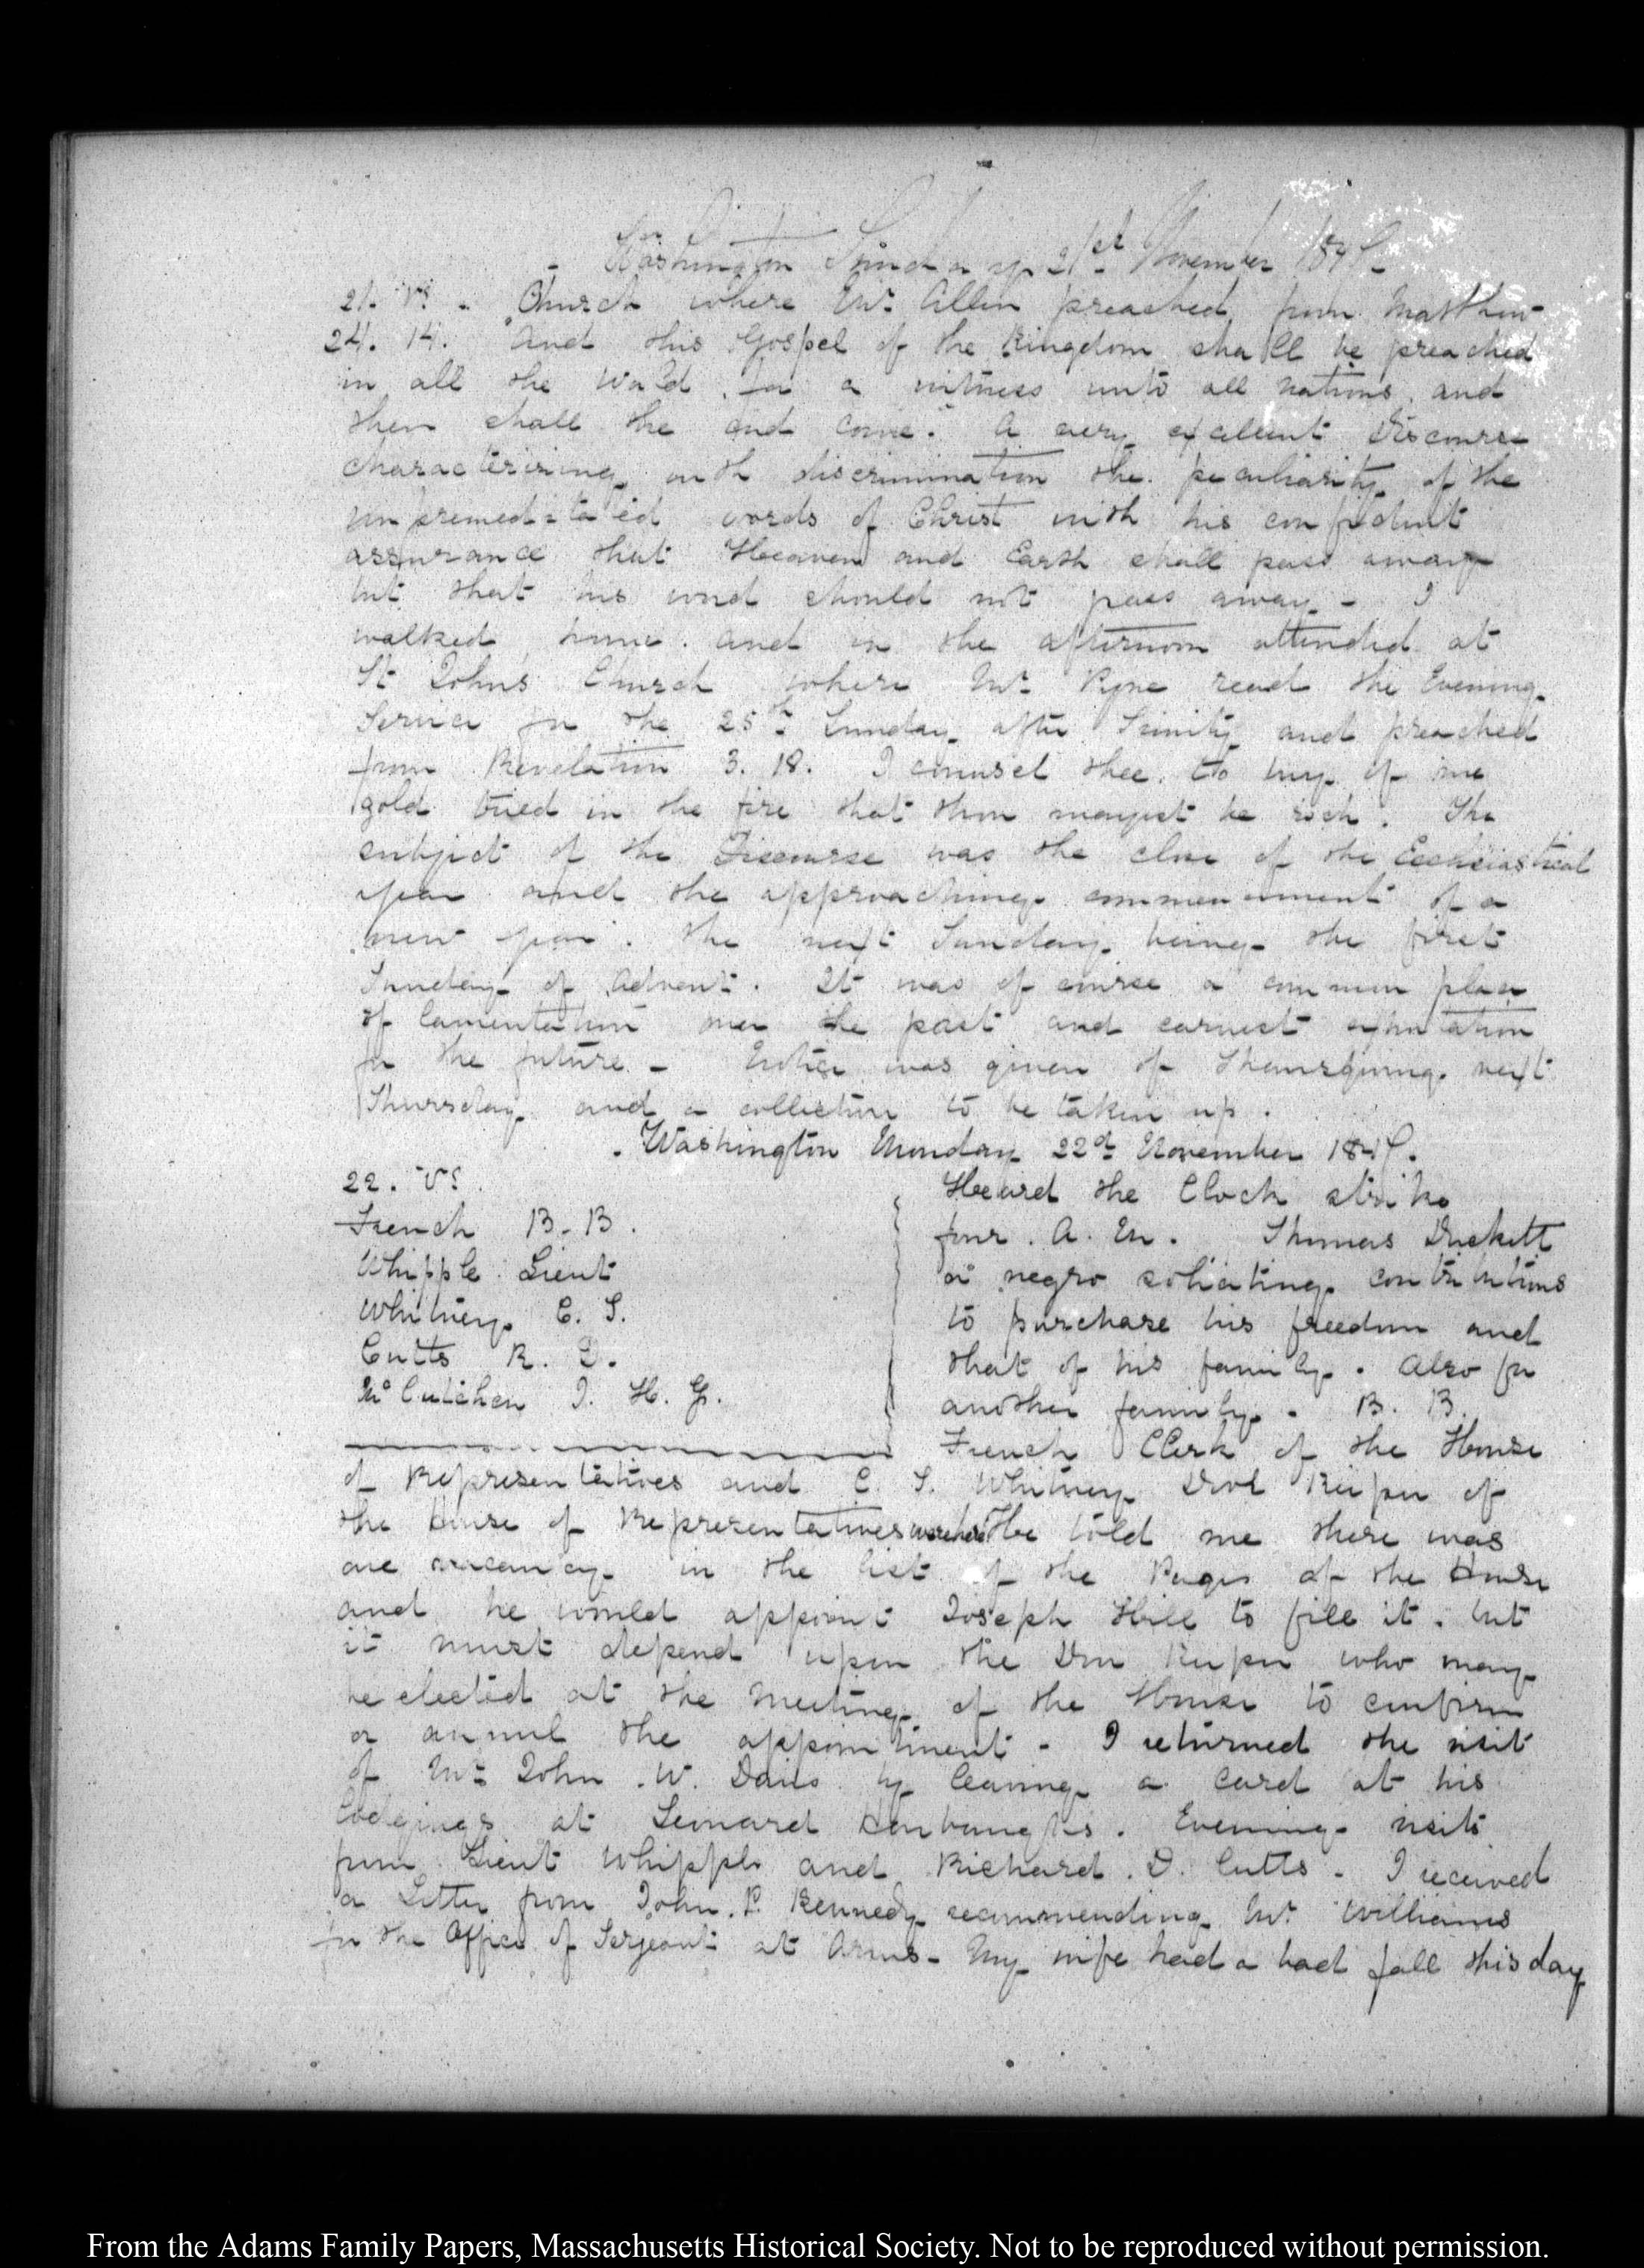 Washington Sunday 21st November 1847.
21. V I. Church where Mr. Allen preached from Matthew
24. 14. And this Gospel of the Kingdom shall be preached
in all the World, for a witness unto all Nations, and
then shall the end come. A very excellent Discourse
characterizing with discrimination the peculiarity of the
unpremeditated words of Christ with his confident
assurance that Heaven and Earth shall pass away
but that his word should not pass away - I
walked home. and in the afternoon attended at
St Johns Church where Mr Pyne read the Evening
Service for the 25th Sunday after Trinity and preached
from Revelation 3. 18. I counsel thee to buy of me
gold tried in the fire that thou mayest be rich. The
subject of the Discourse was the close of the Ecclesiastical
year and the approaching commencement of a
new year. the next Sunday being the first
Sunday of Advent. It was of course a common place
of lamentation over the past and earnest exhortation
for the future - Notice was given of Thanksgiving next
Thursday and a collection to be taken up.
Washington Monday 22d November 1847.
22. V I.
French B. B.
Whipple Lieut
Whitney C. S.
Cutts R. D.
McCutchen J. H. G.
Heard the Clock strike
four. A. M. Thomas Duckett
a negro soliciting contributions
to purchase his freedom and
that of his family. Also for
another family - B. B.
French Clerk of the House
of Representatives and C. S. Whitney Door Keeper of
the House of Representatives were here He told me there was
one vacancy in the list of the Pages of the House
and he would appoint Joseph Hill to fill it. but
it must depend upon the Door Keeper who may
be elected at the meeting of the House to confirm
or annul the appointment - I returned the visit
of Mr John W. Davis by leaving a Card at his
lodgings at Leonard Harbaugh's. Evening visits
from Lieut Whipple and Richard D. Cutts - I received
a Letter from John P. Kennedy recommending Mr Williams
for the Office of Sergeant at Arms - My wife had a bad fall this day
From the Adams Family Papers, Massachusetts Historical Society. Not to be reproduced without permission.